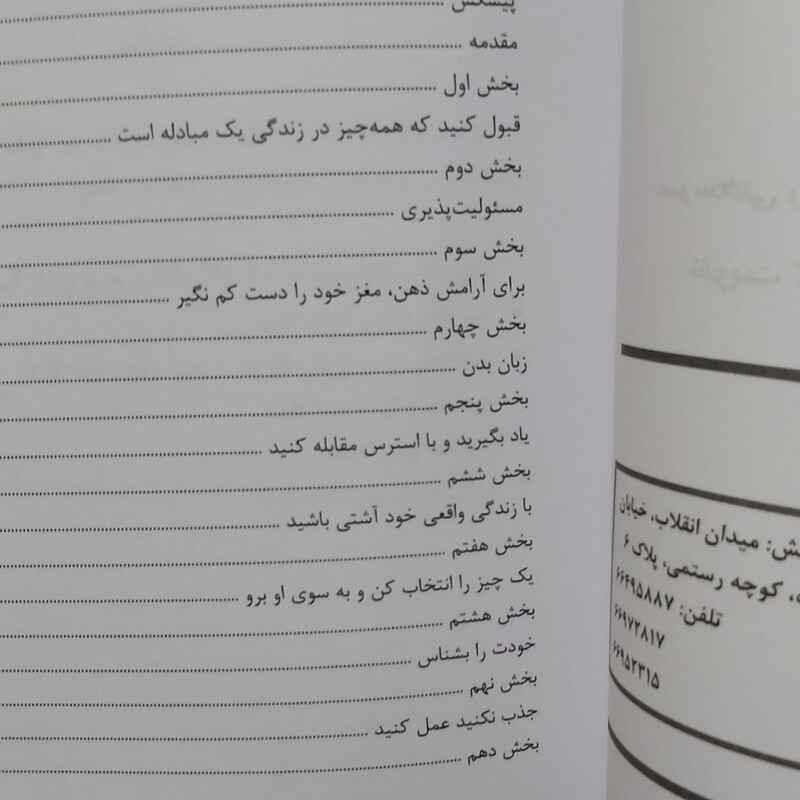 پیشکش
مقدمه
بخش اول
قبول کنید که همه‌چیز در زندگی یک مبادله است
بخش دوم
مسئولیت‌پذیری
بخش سوم
برای آرامش ذهن، مغز خود را دست کم نگیر
بخش چهارم
زبان بدن
بخش پنجم
یاد بگیرید و با استرس مقابله کنید
بخش ششم
با زندگی واقعی خود آشتی باشید
بخش هفتم
یک چیز را انتخاب کن و به سوی او برو
بخش هشتم
خودت را بشناس
بخش نهم
جذب نکنید عمل کنید
بخش دهم
میدان انقلاب، خیابان
کوچه رستمی، پلاک ۶
تلفن: ۶۶۴۹۵۸۸۷
۶۶۹۷۲۸۱۷
۶۶۹۵۲۳۱۵